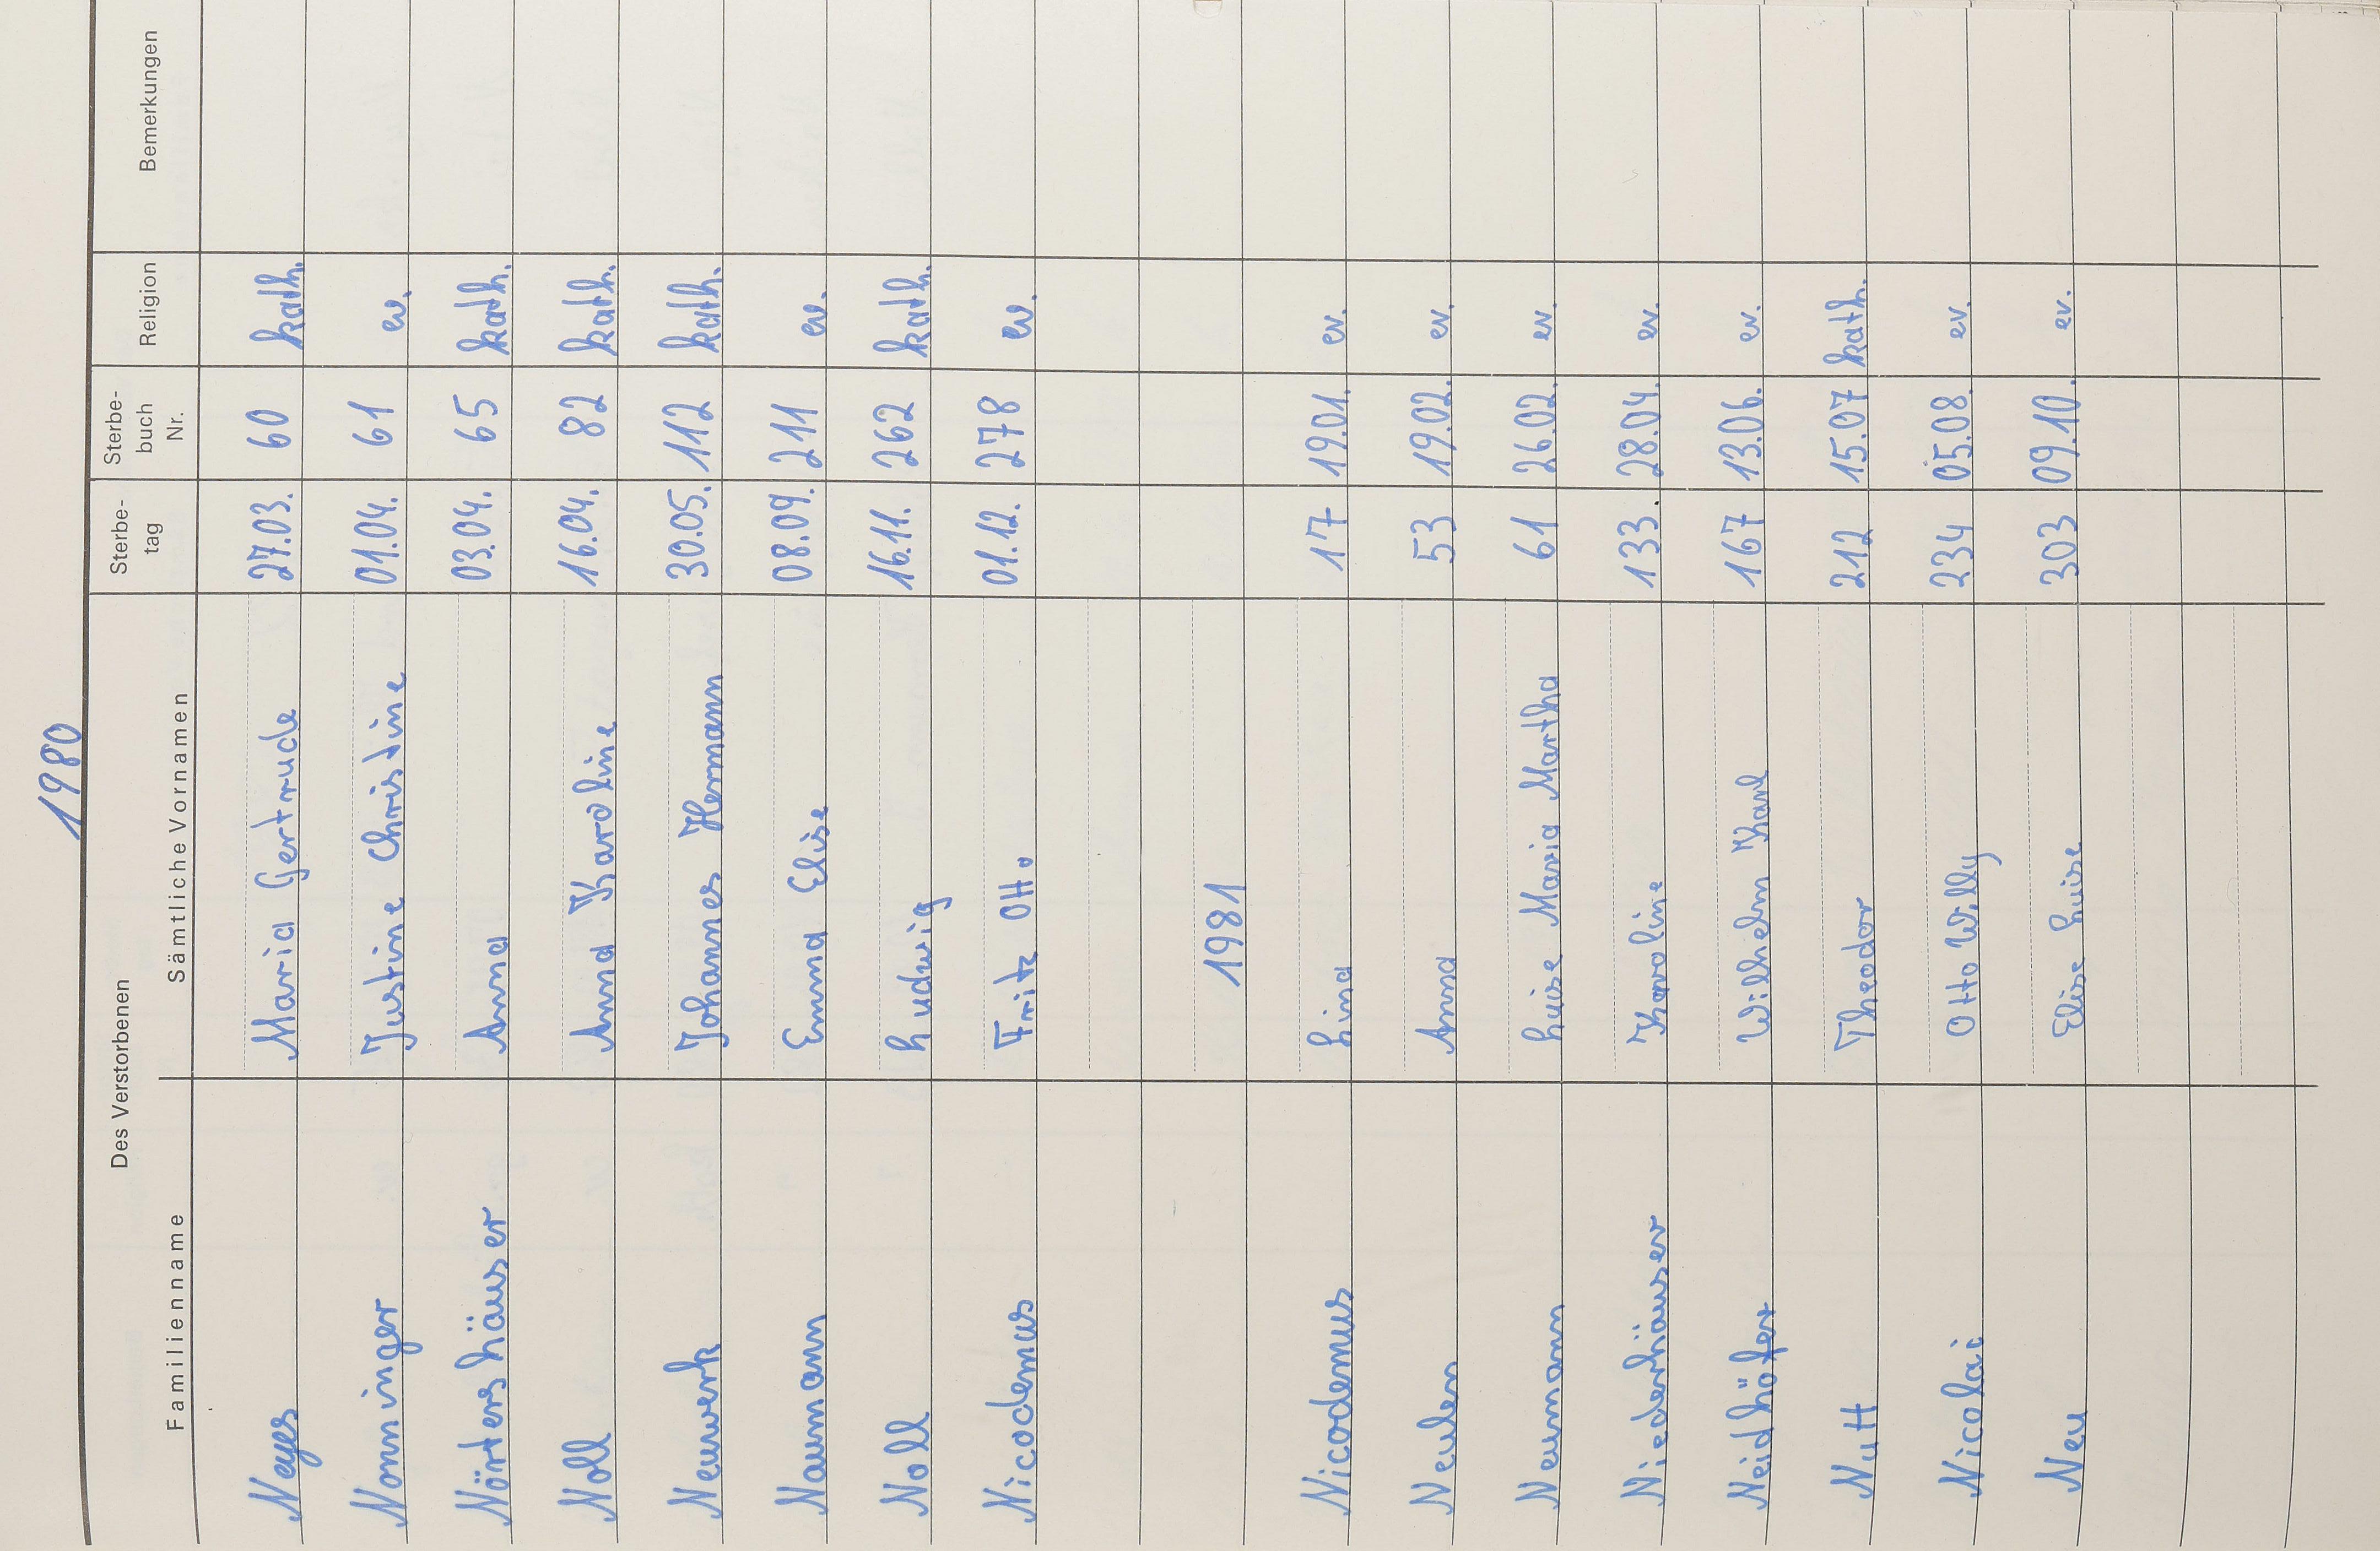 1980
Des Verstorbenen Sterbe- tag Sterbe- buch Nr. Religion Bemerkungen
Familienname Sämtliche Vornamen
Neyes Maria Gertrude 27.03. 60 kath.
Nonninger Justine Christine 01.04. 61 ev.
Nörtershäuser Anna 03.04. 65 kath.
Noll Anna Karoline 16.04. 82 kath.
Neuwerk Johannes Hermann 30.05. 112 kath.
Naumann Emma Elise 08.09. 211 ev.
Noll Ludwig 16.11. 262 kath.
Nicodemus Fritz Otto 01.12. 278 ev.
1981
Nicodemus Lina 17 19.01. ev.
Neulen Anna 53 19.02. ev.
Neumann Luise Maria Martha 61 26.02. ev.
Niederhäuser Karoline 133. 28.04. ev.
Neidhöfer Wilhelm Karl 167 13.06. ev.
Nutt Theodor 212 15.07 kath.
Nicolai Otto Willy 234 05.08. ev.
Neu Elise Luise 303 09.10. ev.